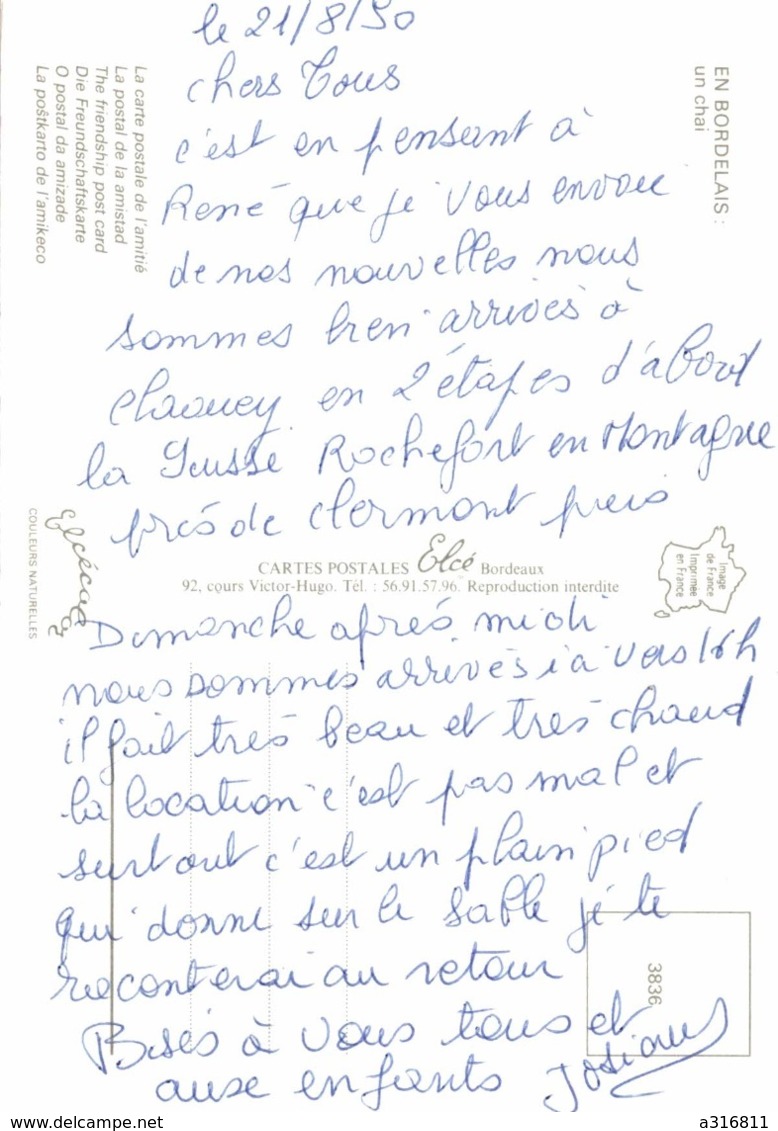 le 21/8/90
chers Tous
c'est en pensant à
René que je vous envoie
de nos nouvelles nous
sommes bien arrivés à
Claouey en 2 étapes d'abord
la Rochefort en Montagne
prés de Clermont puis
Dimanche aprés midi
nous sommes arrivés vers 16h
il fait trés beau et trés chaud
la location c'est pas mal et
surtout c'est un plain pied
qui donne sur le sable je te
raconterai au retour
Bises à vous tous et
aux enfants Josiane
EN BORDELAIS :
un chai
La carte postale de l'amitié
La postal de la amistad
The friendship post card
Die Freundschaftskarte
O postal da amizade
La poŝtkarto de l'amikeco
COULEURS NATURELLES
CARTES POSTALES Elcé Bordeaux
92, cours Victor-Hugo. Tél. : 56.91.57.96. Reproduction interdite
Image
de France
Imprimée
en France
3836
a316811